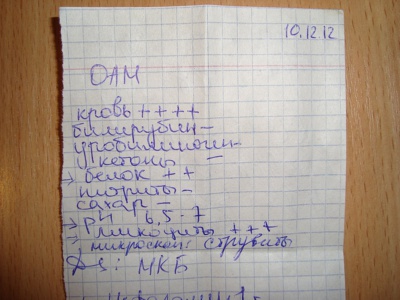 10.12.12
ОАМ
кровь ++++
билирубин —
уробилиноген —
кетоны —
→ белок ++
нитриты —
сахар —
→ pH 6,5-7
→ лейкоциты +++
→ микроскоп: струвиты
Ds: МКБ